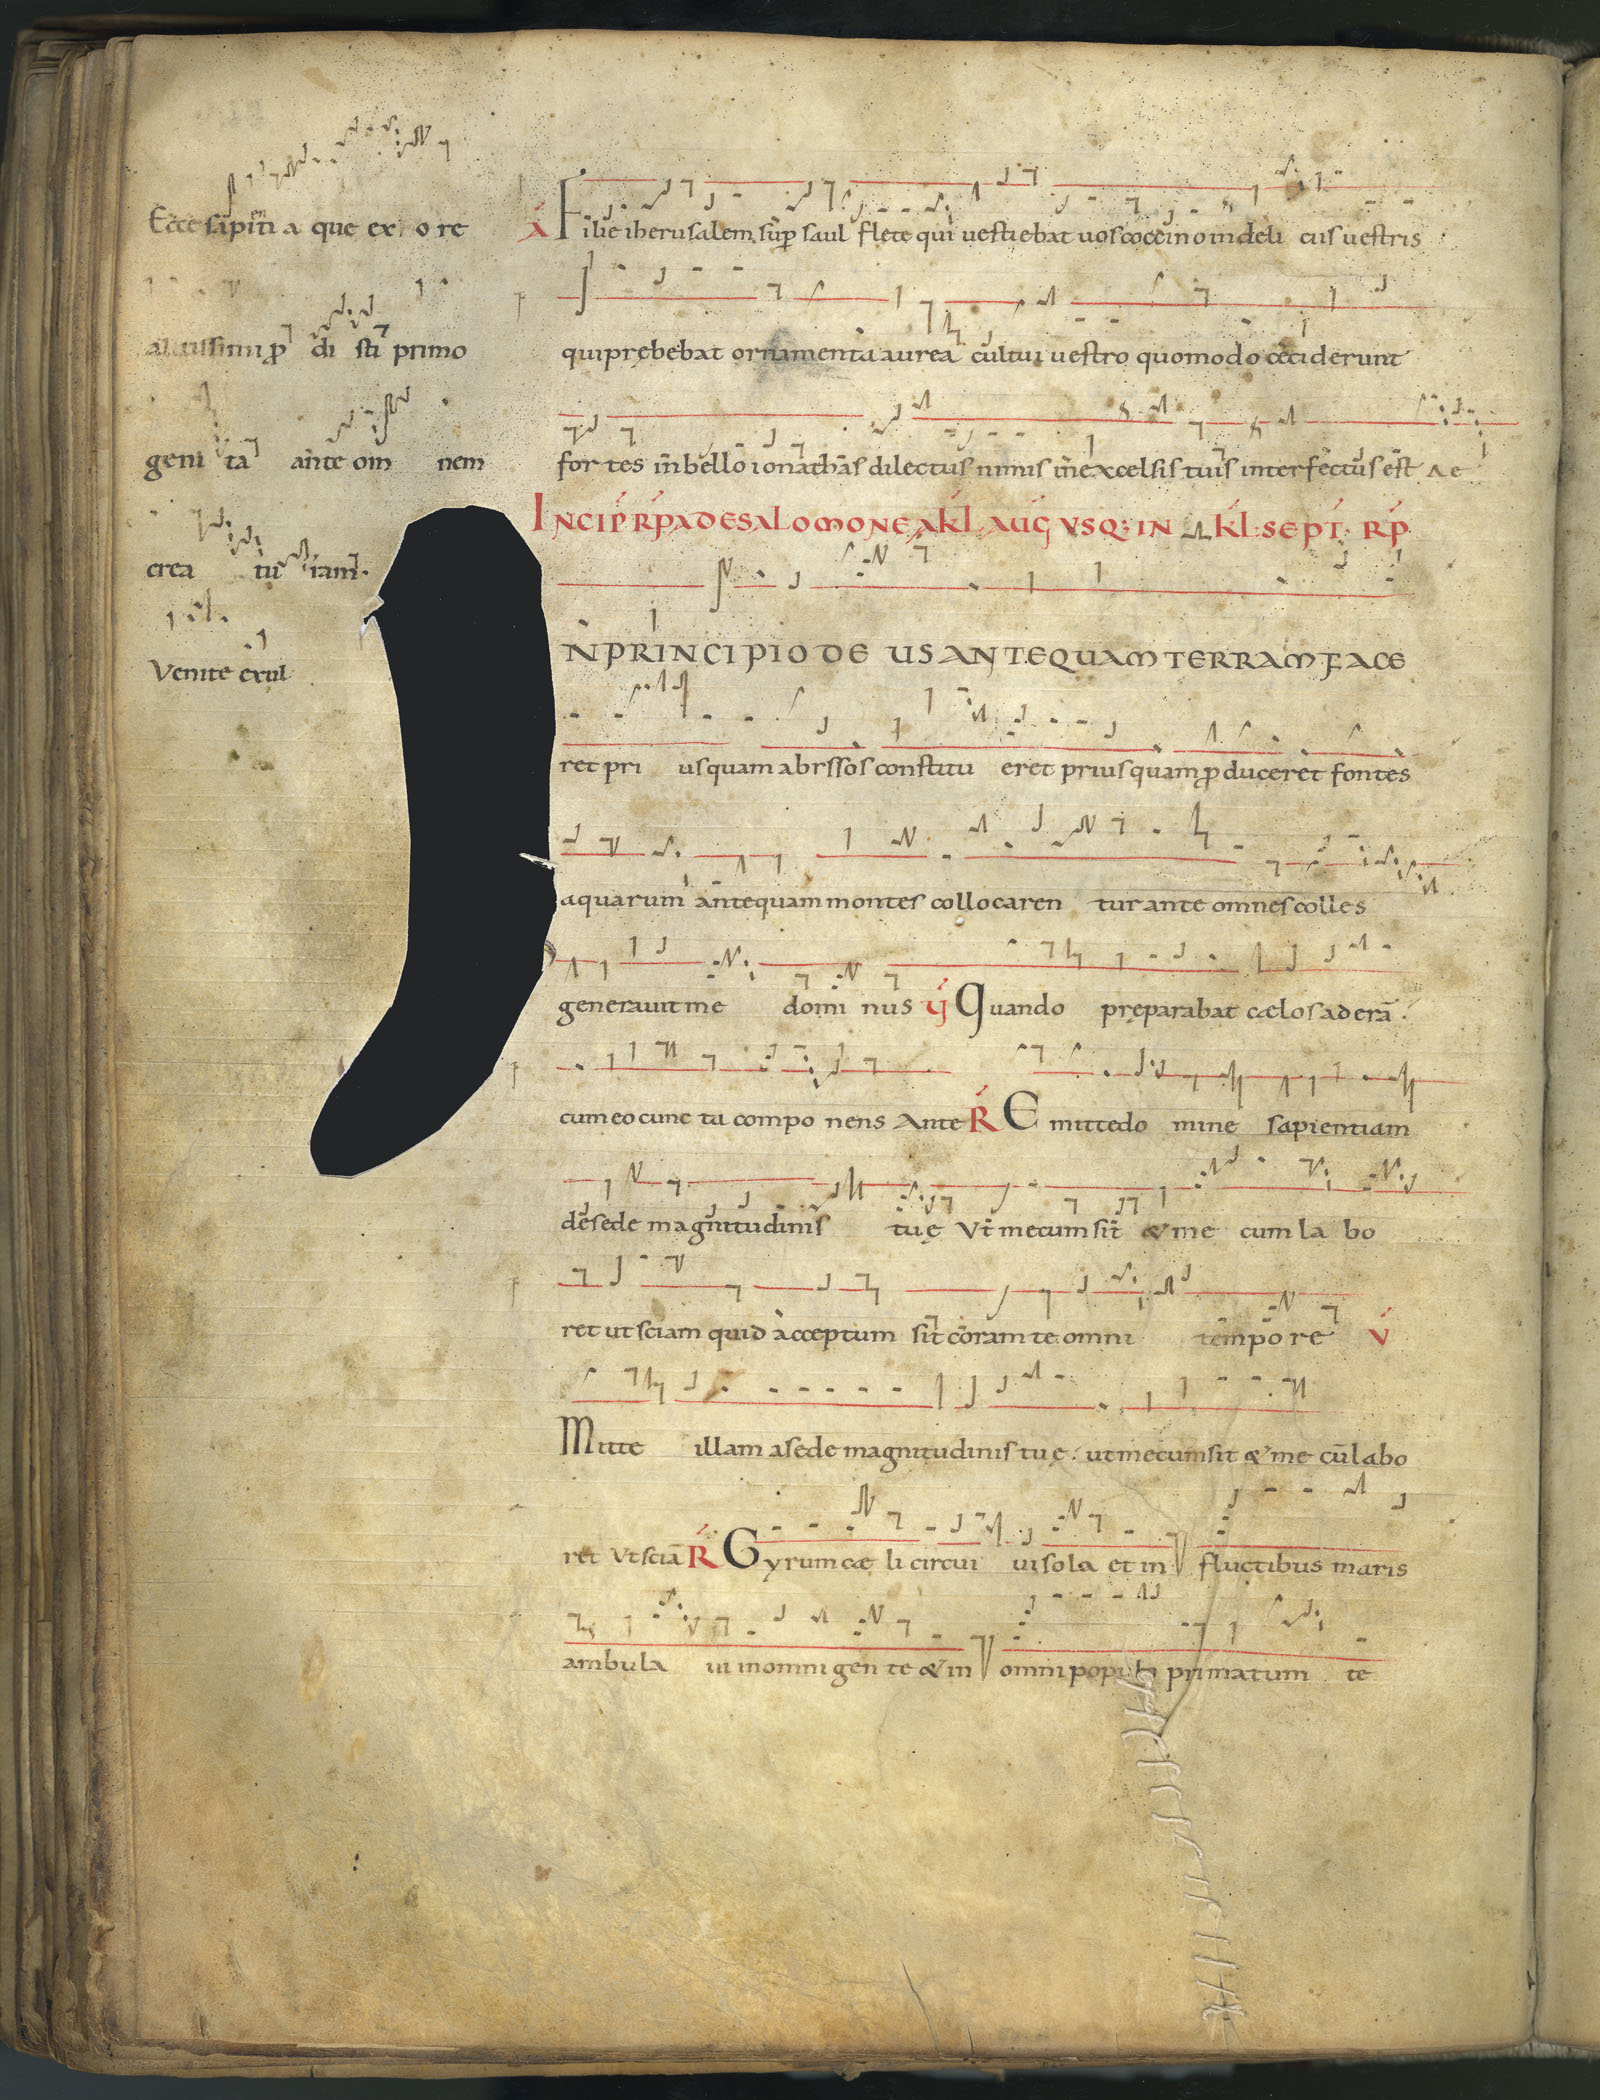 Ecce sapienti a que ex o re
altissimi ꝓ di sti primo
geni ta ante om nem
crea tu ram.
Venite exul
A Filie iherusalem sup saul flete qui uestiebat uos coccino in deli ciis uestris
qui prębebat ornamenta aurea cultui uestro quomodo ceciderunt
for tes in bello ionathas dilectus nimis in excelsis tuis interfectus est Ae
INCIP RP ADE SALOMONE A KL AUG VSQ: IN KL SEPT. RP.
N PRINCIPIO DE US ANTEQUAM TERRAM FACE
ret pri usquam abyssos constitu eret priusquam ꝓduceret fontes
aquarum antequam montes collocaren tur ante omnes colles
generauit me domi nus V Quando pręparabat cælos aderā.
cum eo cunc ta compo nens Ante R E mitte do mine sapientiam
de sede magnitudinis tuę Vt mecum sit & me cum la bo
ret ut sciam quid acceptum sit coram te omni tempo re V
Mitte illam a sede magnitudinis tuę. ut mecum sit & me cū labo
ret Vt sciā R Gyrum cæ li circui ui sola et in fluctibus maris
ambula ui in omni gen te & in omni populo primatum te